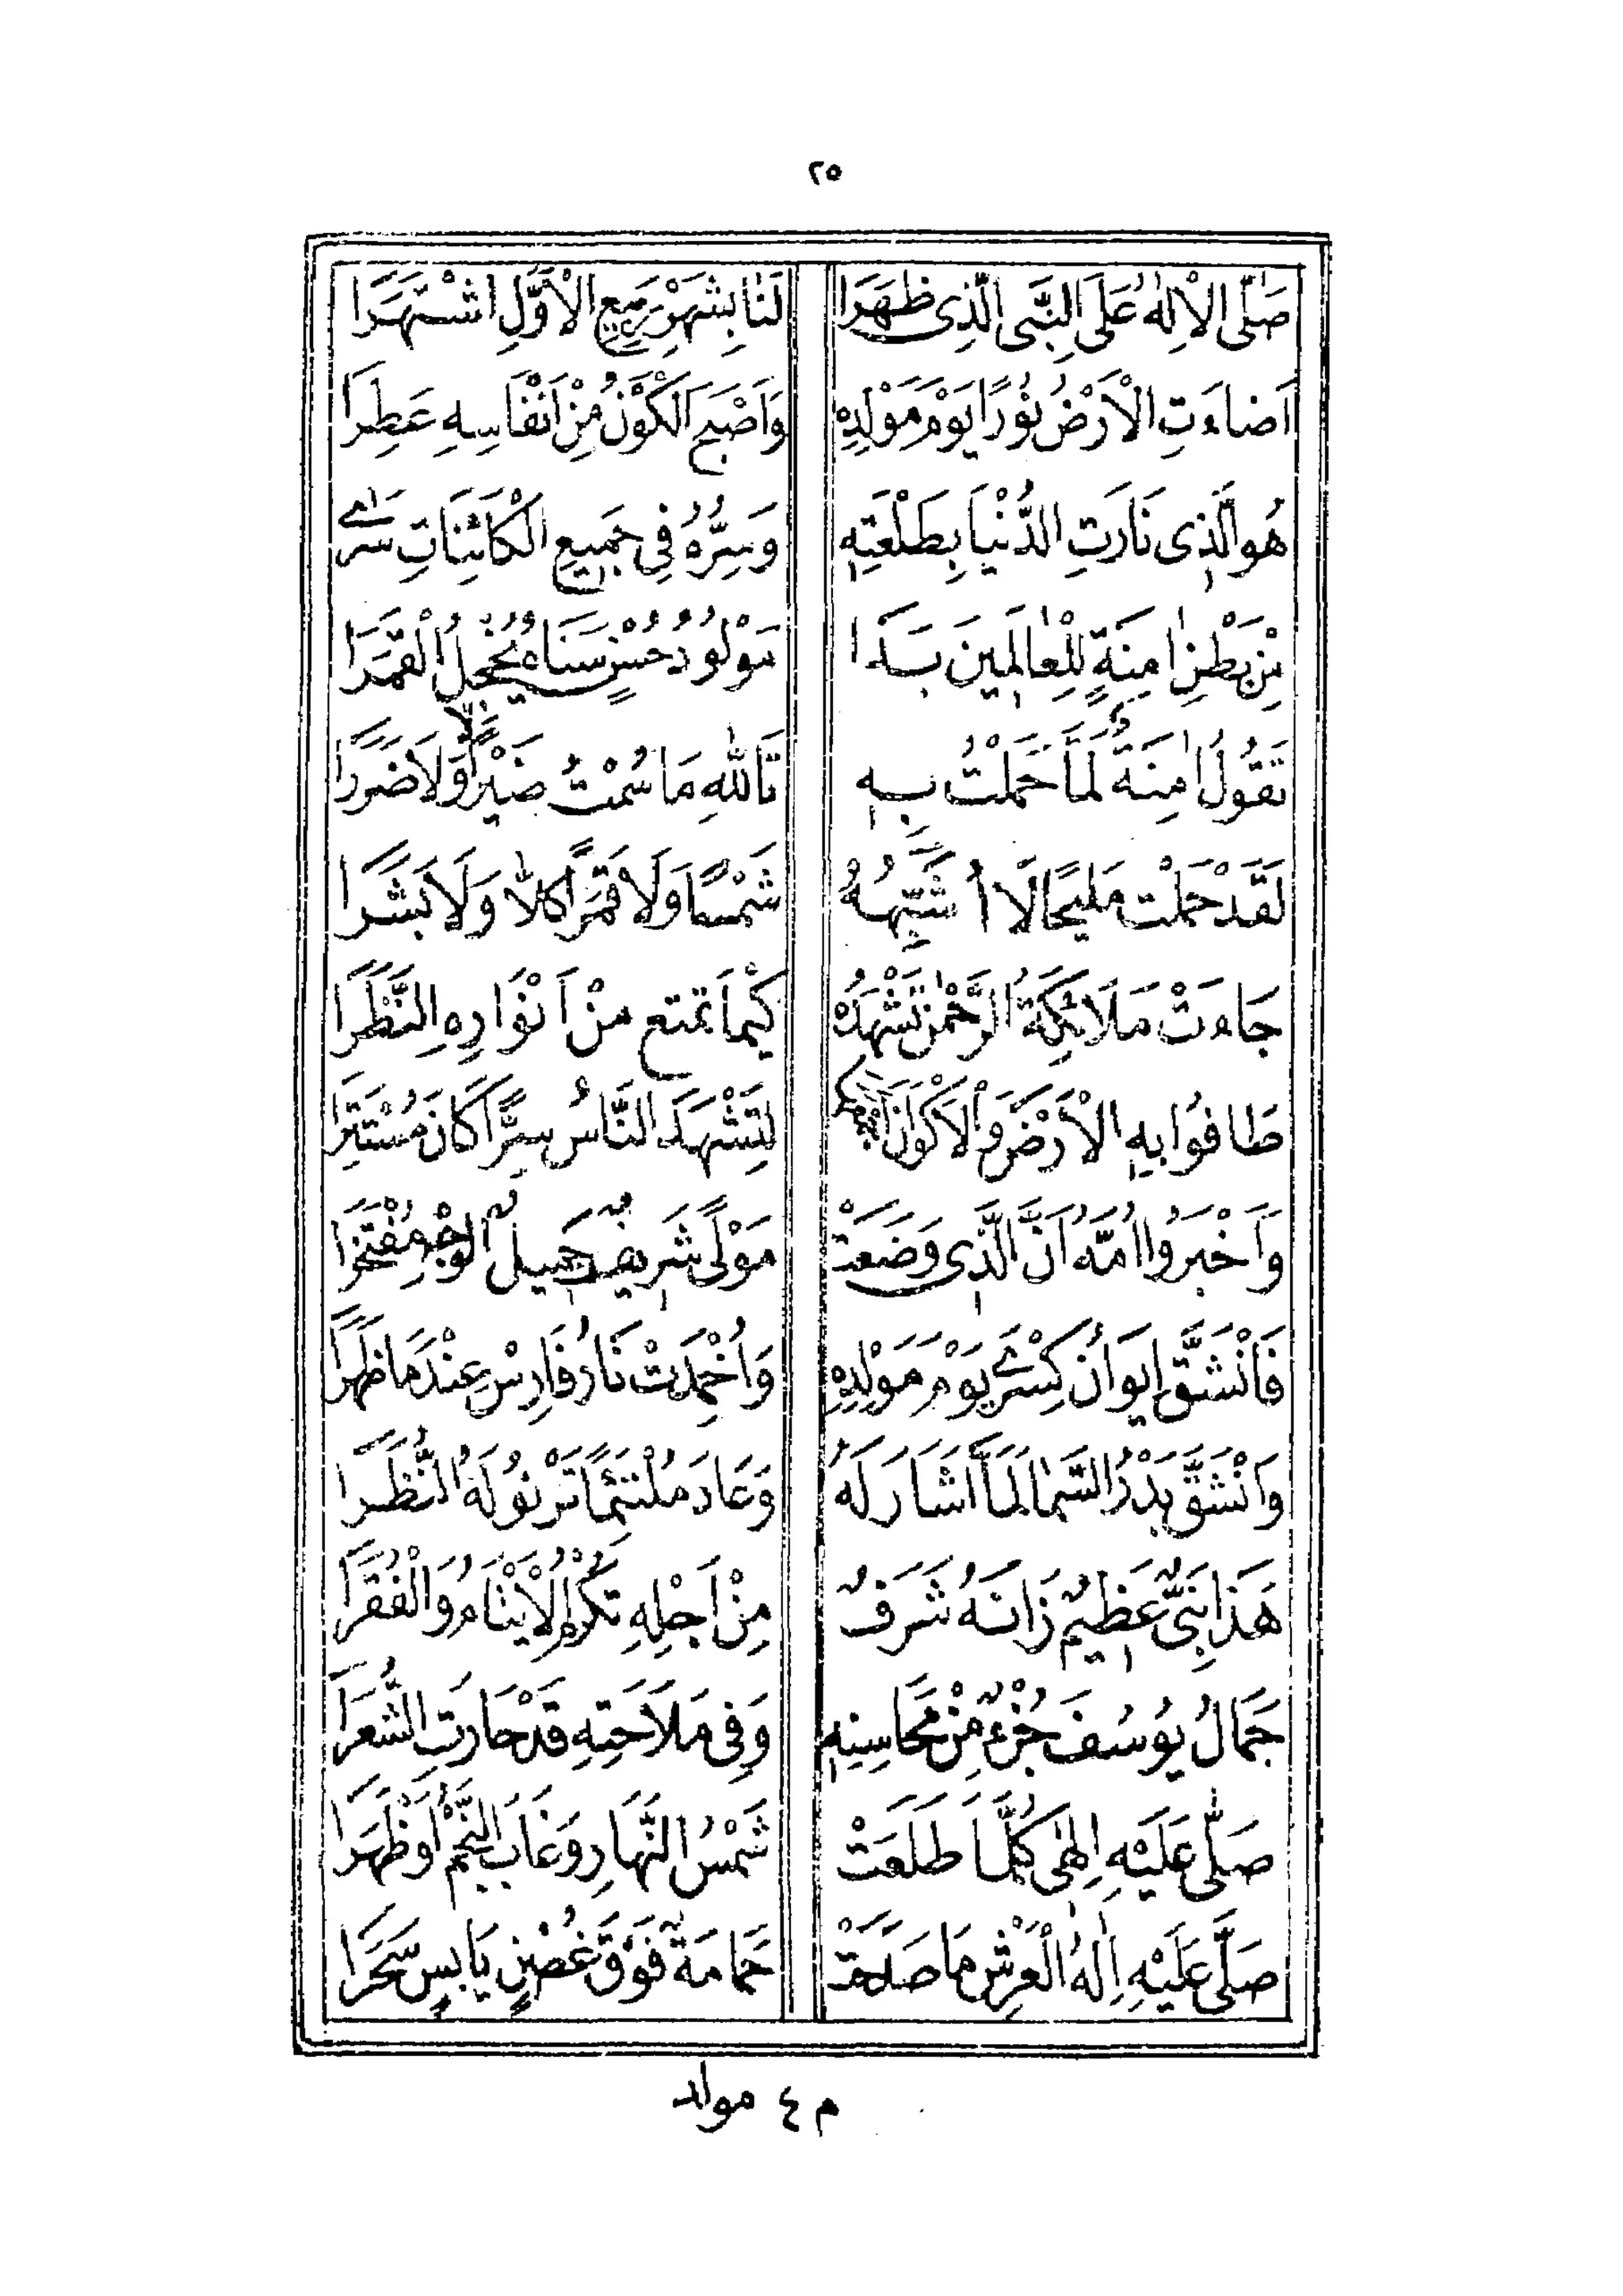 ٢٥
صَلَّى الْاِلٰهُ عَلَى النَّبِى الَّذِى ظَهَرَا لَنَا بِشَهْرِ رَبِيعِ الْاَوَّلِ اشْتَهَرَا
اَضَاءَتِ الْاَرْضُ نُوْرًا يَوْمَ مَوْلِدِهِ وَاَصْبَحَ الْكَوْنُ مِنْ اَنْفَاسِهِ عَطِرَا
هُوَ الَّذِى نَارَتِ الدُّنْيَا بِطَلْعَتِهِ وَسِرُّهُ فِى جَمِيعِ الْكَائِنَاتِ سَرٰى
مِنْ بَطْنِ اٰمِنَةٍ لِلْعَالَمِينَ بَدَا مَوْلُودُ حُسْنٍ سَنَاهُ يُخْجِلُ الْقَمَرَا
تَقُولُ اٰمِنَةٌ لَمَّا حَمَلْتُ بِهِ تَاللّٰهِ مَا سُمْتُ ضَيْرًا لَا وَلَا ضَرَرَا
لَقَدْ حَمَلْتُ مَلِيحًا لَا أُشَبِّهُهُ شَمْسًا وَلَا قَمَرًا كَلَّا وَلَا بَشَرَا
جَاءَتْ مَلَائِكَةُ الرَّحْمٰنِ تَشْهَدُهُ كَيْمَا تَمتع مِنْ اَنْوَارِهِ النَّظَرَا
طَافُوا بِهِ الْاَرْضَ وَالْاَكْوَانَ لِتَشْهَدَ النَّاسُ سِرًّا كَانَ مُسْتَتِرَا
وَاَخْبَرُوا اُمَّهُ اَنَّ الَّذِى وَضَعَتْ مَوْلًى شَرِيفٌ جَمِيلُ الْوَجْهِ مُفْتَخِرَا
فَانْشَقَّ اِيوَانُ كِسْرٰى يَوْمَ مَوْلِدِهِ وَاُخْمِدَتْ نَارُ فَارِسْ عِنْدَمَا ظَهَرَا
وَانْشَقَّ بَدْرُ السَّمَا لَمَّا اَشَارَ لَهُ وَعَادَ مُلْتَئِمًا تَرْنُو لَهُ النُّظَرَا
هَذَا نَبِىٌّ عَظِيمٌ زَانَهُ شَرَفٌ مِنْ اَجْلِهِ تُكْرَمُ الْاَيْتَامُ وَالْفُقَرَا
جَمَالُ يُوسُفَ جُزْءٌ مِنْ مَحَاسِنِهِ وَفِى مَلَاحَتِهِ قَدْ حَارَتِ الشُّعَرَا
صَلَّى عَلَيْهِ اِلٰهِى كُلَّمَا طَلَعَتْ شَمْسُ النَّهَارِ وَغَابَ النَّجْمُ اَوْ ظَهَرَا
صَلَّى عَلَيْهِ اِلٰهُ الْعَرْشِ مَا صَدَحَتْ حَمَامَةٌ فَوْقَ غُصْنٍ يَابِسٍ سَحَرَا
م ٤ موالد